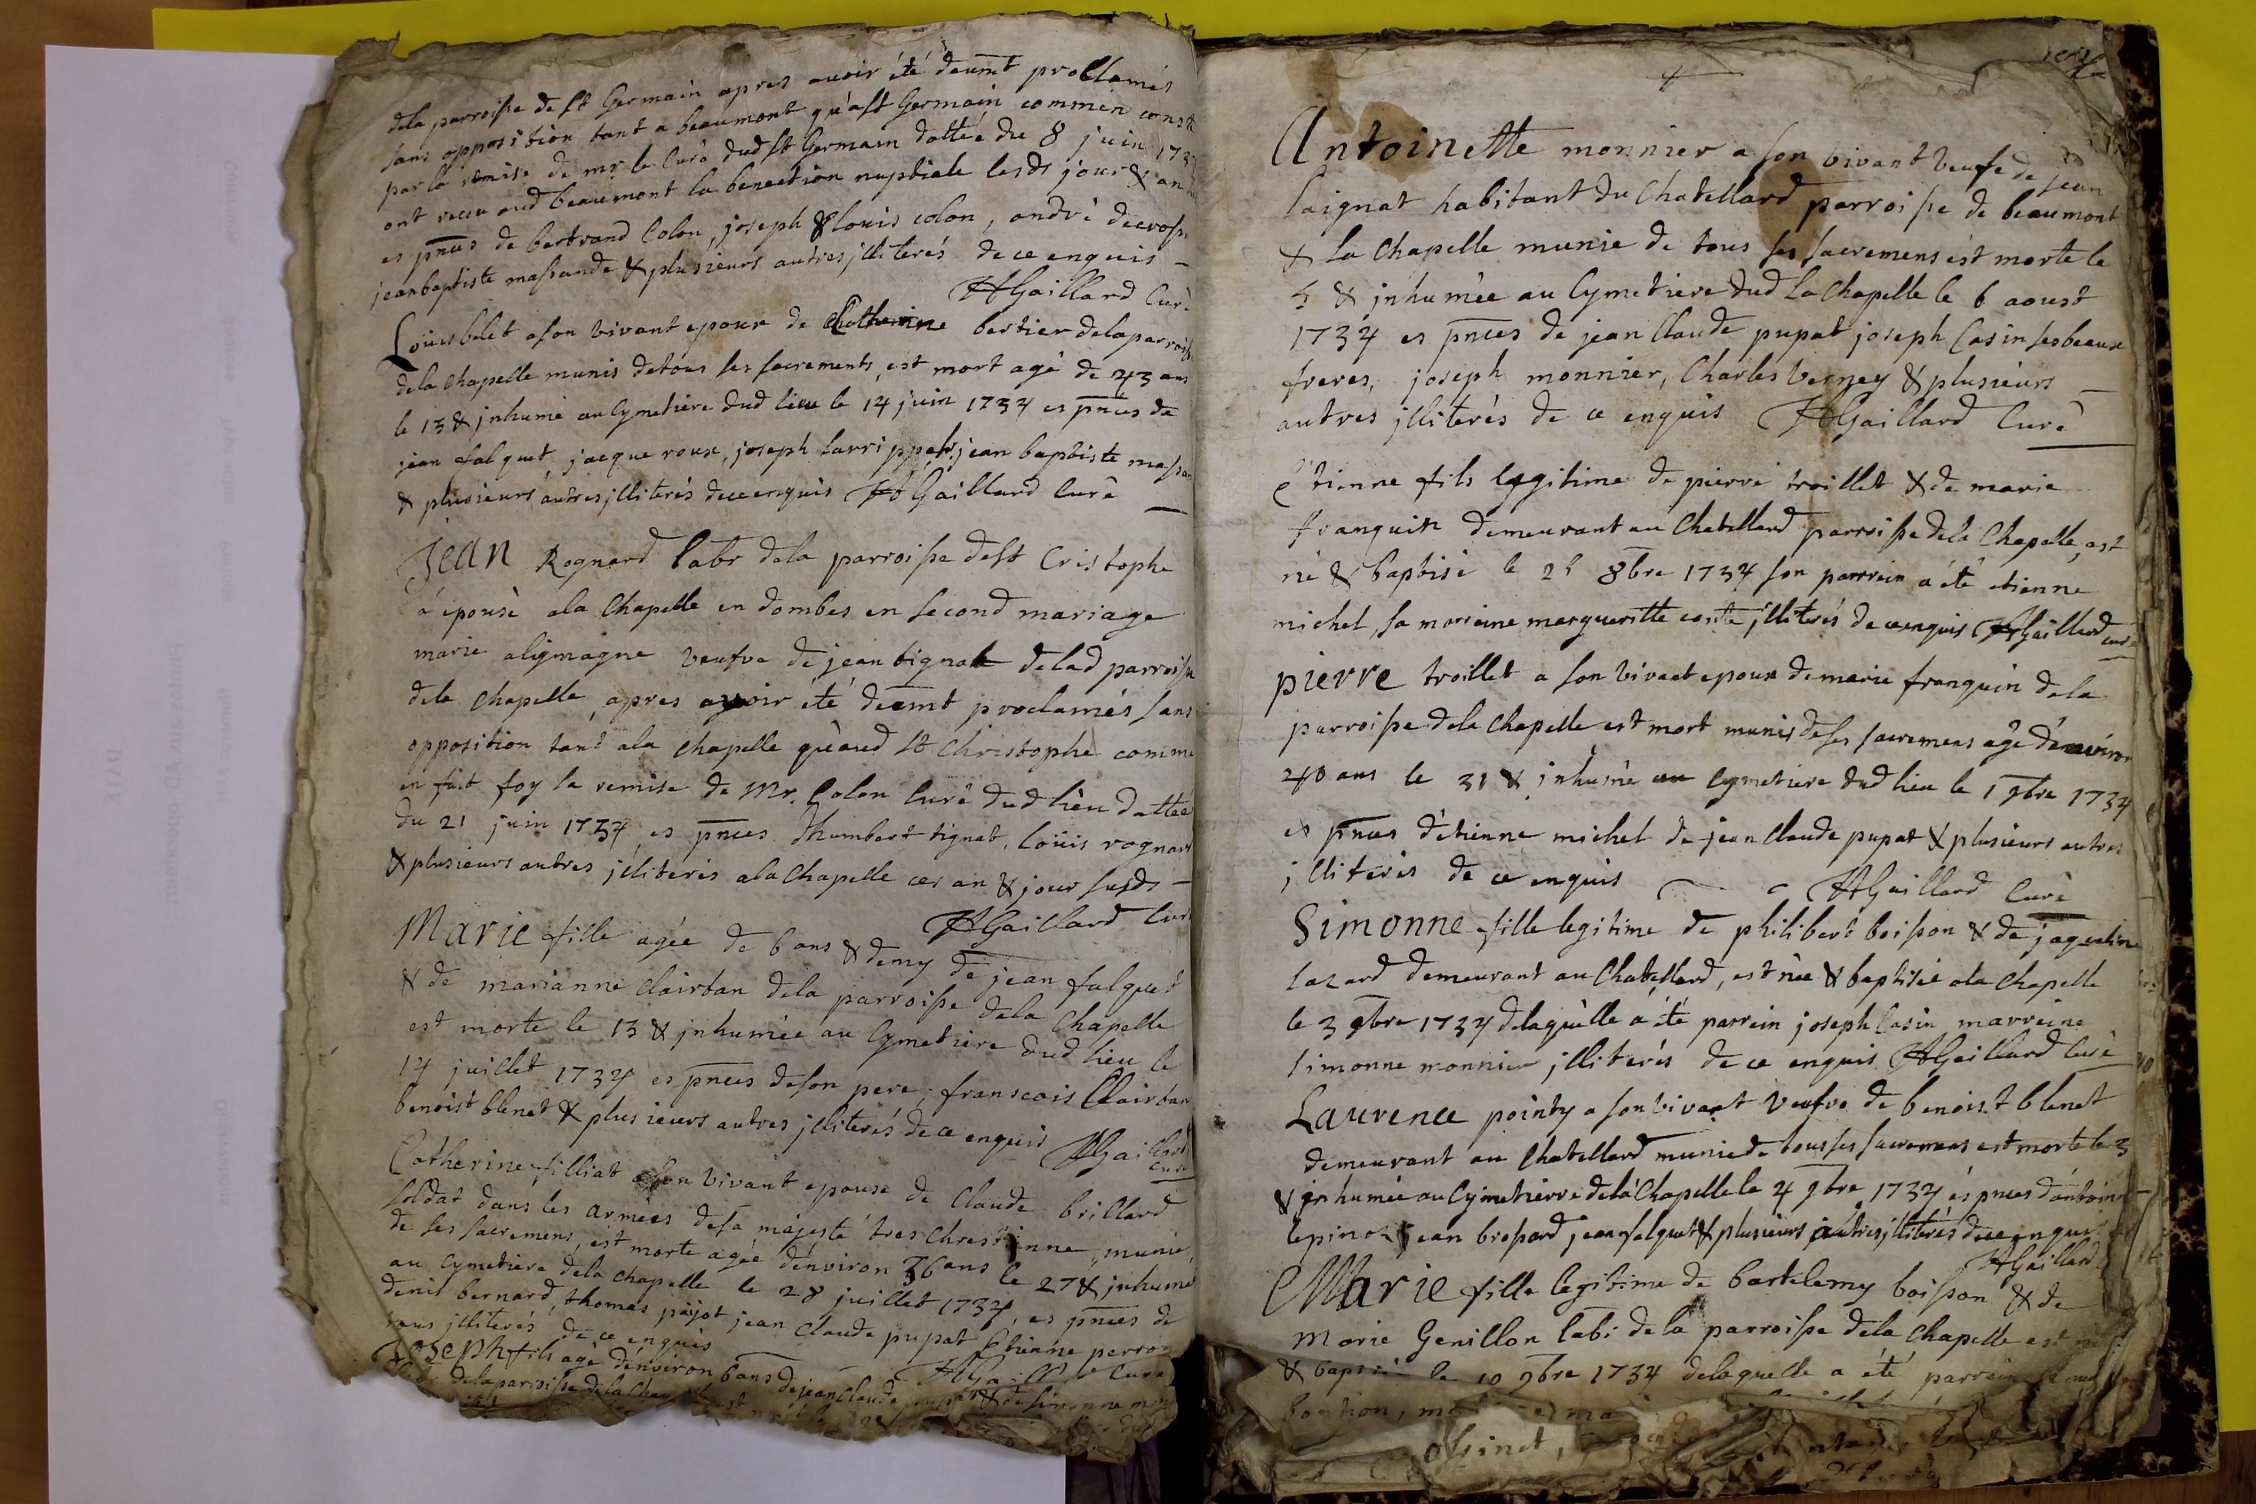 dela parroisse de st Germain apres avoir été deumt proclamés
sans opposition tant a beaumont qu'ast Germain commen conste
par la remise de mr le Curé dud st Germain dattée du 8 juin 173
ont receu aud beaumont la benection nuptiale lesds jour & an
es pnces de bertrand Colon, joseph & loüis colon, andré decros
jean baptiste massande & plusieurs autres jlliterés de ce enquis
HGaillard Curé
Loüis belet a son vivant epoux de Catherine bertier dela parroisse
dela Chapelle munis de tous ses sacrements, est mort agé de 43 ans
le 13 & jnhumé au Cymetiere dud lieu le 14 juin 1734 es pnces de
jean falquet, jacque roux, joseph jean baptiste massan
& plusieurs autres jlliterés de ce enquis HGaillard Curé
Jean Rognard labr dela parroisse de st Cristophe
a épousé ala Chapelle en dombes en second mariage
marie aligmagne veufve de jean tignat delad parroisse
dela Chapelle, apres avoir été deumt proclamés sans
opposition tant ala Chapelle qu'aud st Christophe comme
en fait foy la remise de Mr. Colon Curé dud lieu dattée
du 21 juin 1734 es pnces d'humbert tignat, Loüis rognard
& plusieurs autres jlliterés ala Chapelle ces an & jour susds
HGaillard Curé
Marie fille agée de 6 ans & demy de jean falquet
& de marianne Clairtan dela parroisse dela Chapelle
est morte le 13 & jnhumée au Cymetiere dud lieu le
14 juillet 1734 es pnces de son pere, franscois Clairtan
benoist blenet & plusieurs autres jlliterés de ce enquis HGaillard
Curé
Catherine filliat a son vivant epouse de Claude brillard
soldat dans les armées de sa majesté tres Chrestienne, munie
de ses sacremens, est morte agée d'environ 36 ans le 27 & jnhumé
au Cymetiere dela Chapelle le 28 juillet 1734, es pnces de
denis bernard, thomas payot jean Claude pupat Etienne perron
tous jlliterés de ce enquis HGaillard Curé
Joseph fils agé d'environ 6 ans de jean Claude pupat & de simonne
dela parroisse dela
Antoinette monnier a son vivant veufe de jean
Laignat habitant du Chatellard parroisse de beaumont
& La Chapelle munie de tous ses sacremens est morte le
5 & jnhumée au Cymetiere dud La Chapelle le 6 aoust
1734 es pnces de jean Claude pupat joseph Casin ses beaux
freres, joseph monnier, Charles Verney & plusieurs
autres jlliterés de ce enquis HGaillard Curé
étienne fils legitime de pierre troillet & de marie
franquin demeurant au Chatellard parroisse dela Chapelle, est
né & baptisé le 8bre 1734 son parrein a été etienne
michel, sa marreine margueritte jlliterés de ce enquis HGaillard
curé
pierre troillet a son vivant epoux de marie franquin dela
parroisse dela Chapelle est mort munis de ses sacremens agé d'environ
40 ans le 31 & jnhumé au Cymetiere dud lieu le 1 9bre 1734
es pnces d'étienne michel de jean Claude pupat & plusieurs autres
jlliterés de ce enquis HGaillard Curé
Simonne fille legitime de philibert boisson & de jaqueline
Lazard demeurant au Chatellard, est née & baptisée ala Chapelle
le 3 9bre 1734 delaquelle a été parrein joseph Casin marreine
simonne monnier jlliterés de ce enquis HGaillard Curé
Laurence pointy a son vivant veufve de benoist blenet
demeurant au Chatellard munie de tous ses sacremens est morte le 3
& jnhumée au Cymetierre dela Chapelle le 4 9bre 1734 es pnces d'antoine
lepinoz jean brossard jean falquet & plusieurs autres jlliterés de ce enquis
HGaillard
Marie fille legitime de bartelemy boisson & de
Marie Genillon labr dela parroisse dela Chapelle est née
& baptisée le 10 9bre 1734 delaquelle a été parrein